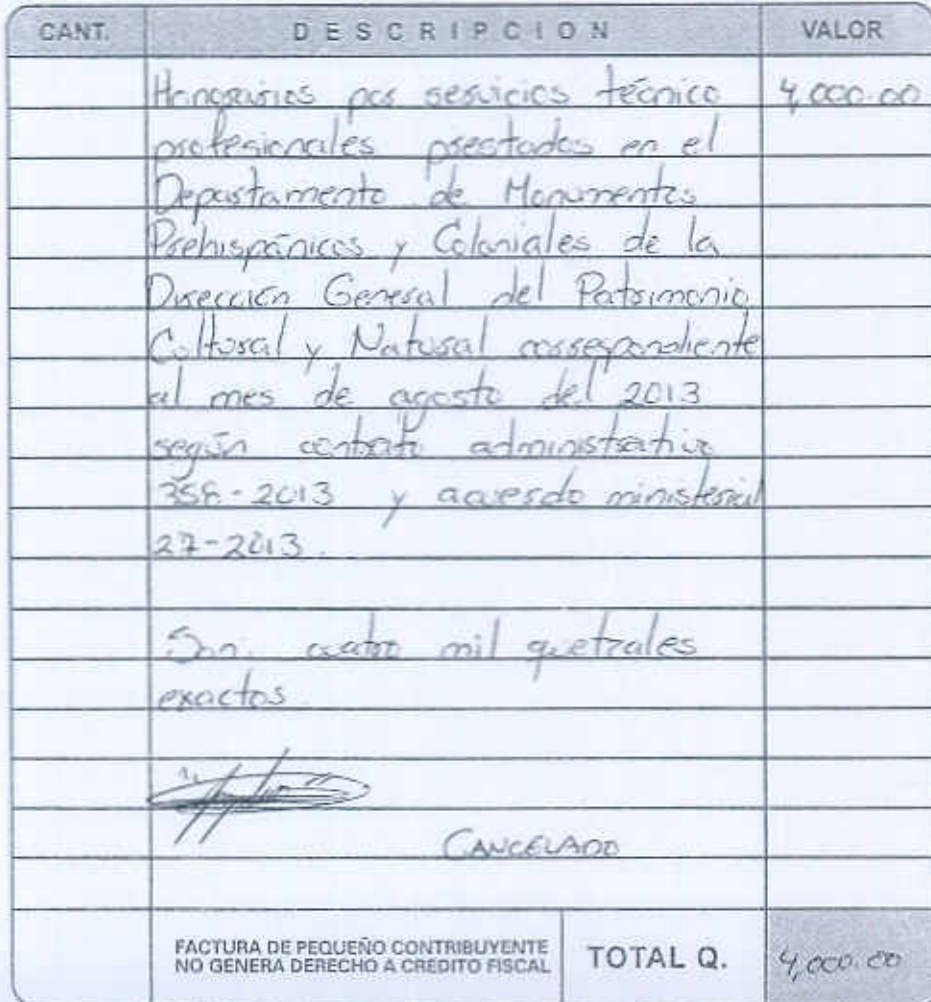 CANT. DESCRIPCION VALOR
Honorarios por servicios técnico 4,000.00
profesionales prestados en el
Departamento de Monumentos
Prehispánicos y Coloniales de la
Dirección General del Patrimonio
Cultural y Natural correspondiente
al mes de agosto del 2013
según contrato administrativo
358-2013 y acuerdo ministerial
27-2013.
Son: cuatro mil quetzales
exactos.
CANCELADO
FACTURA DE PEQUEÑO CONTRIBUYENTE
NO GENERA DERECHO A CREDITO FISCAL
TOTAL Q. 4,000.00